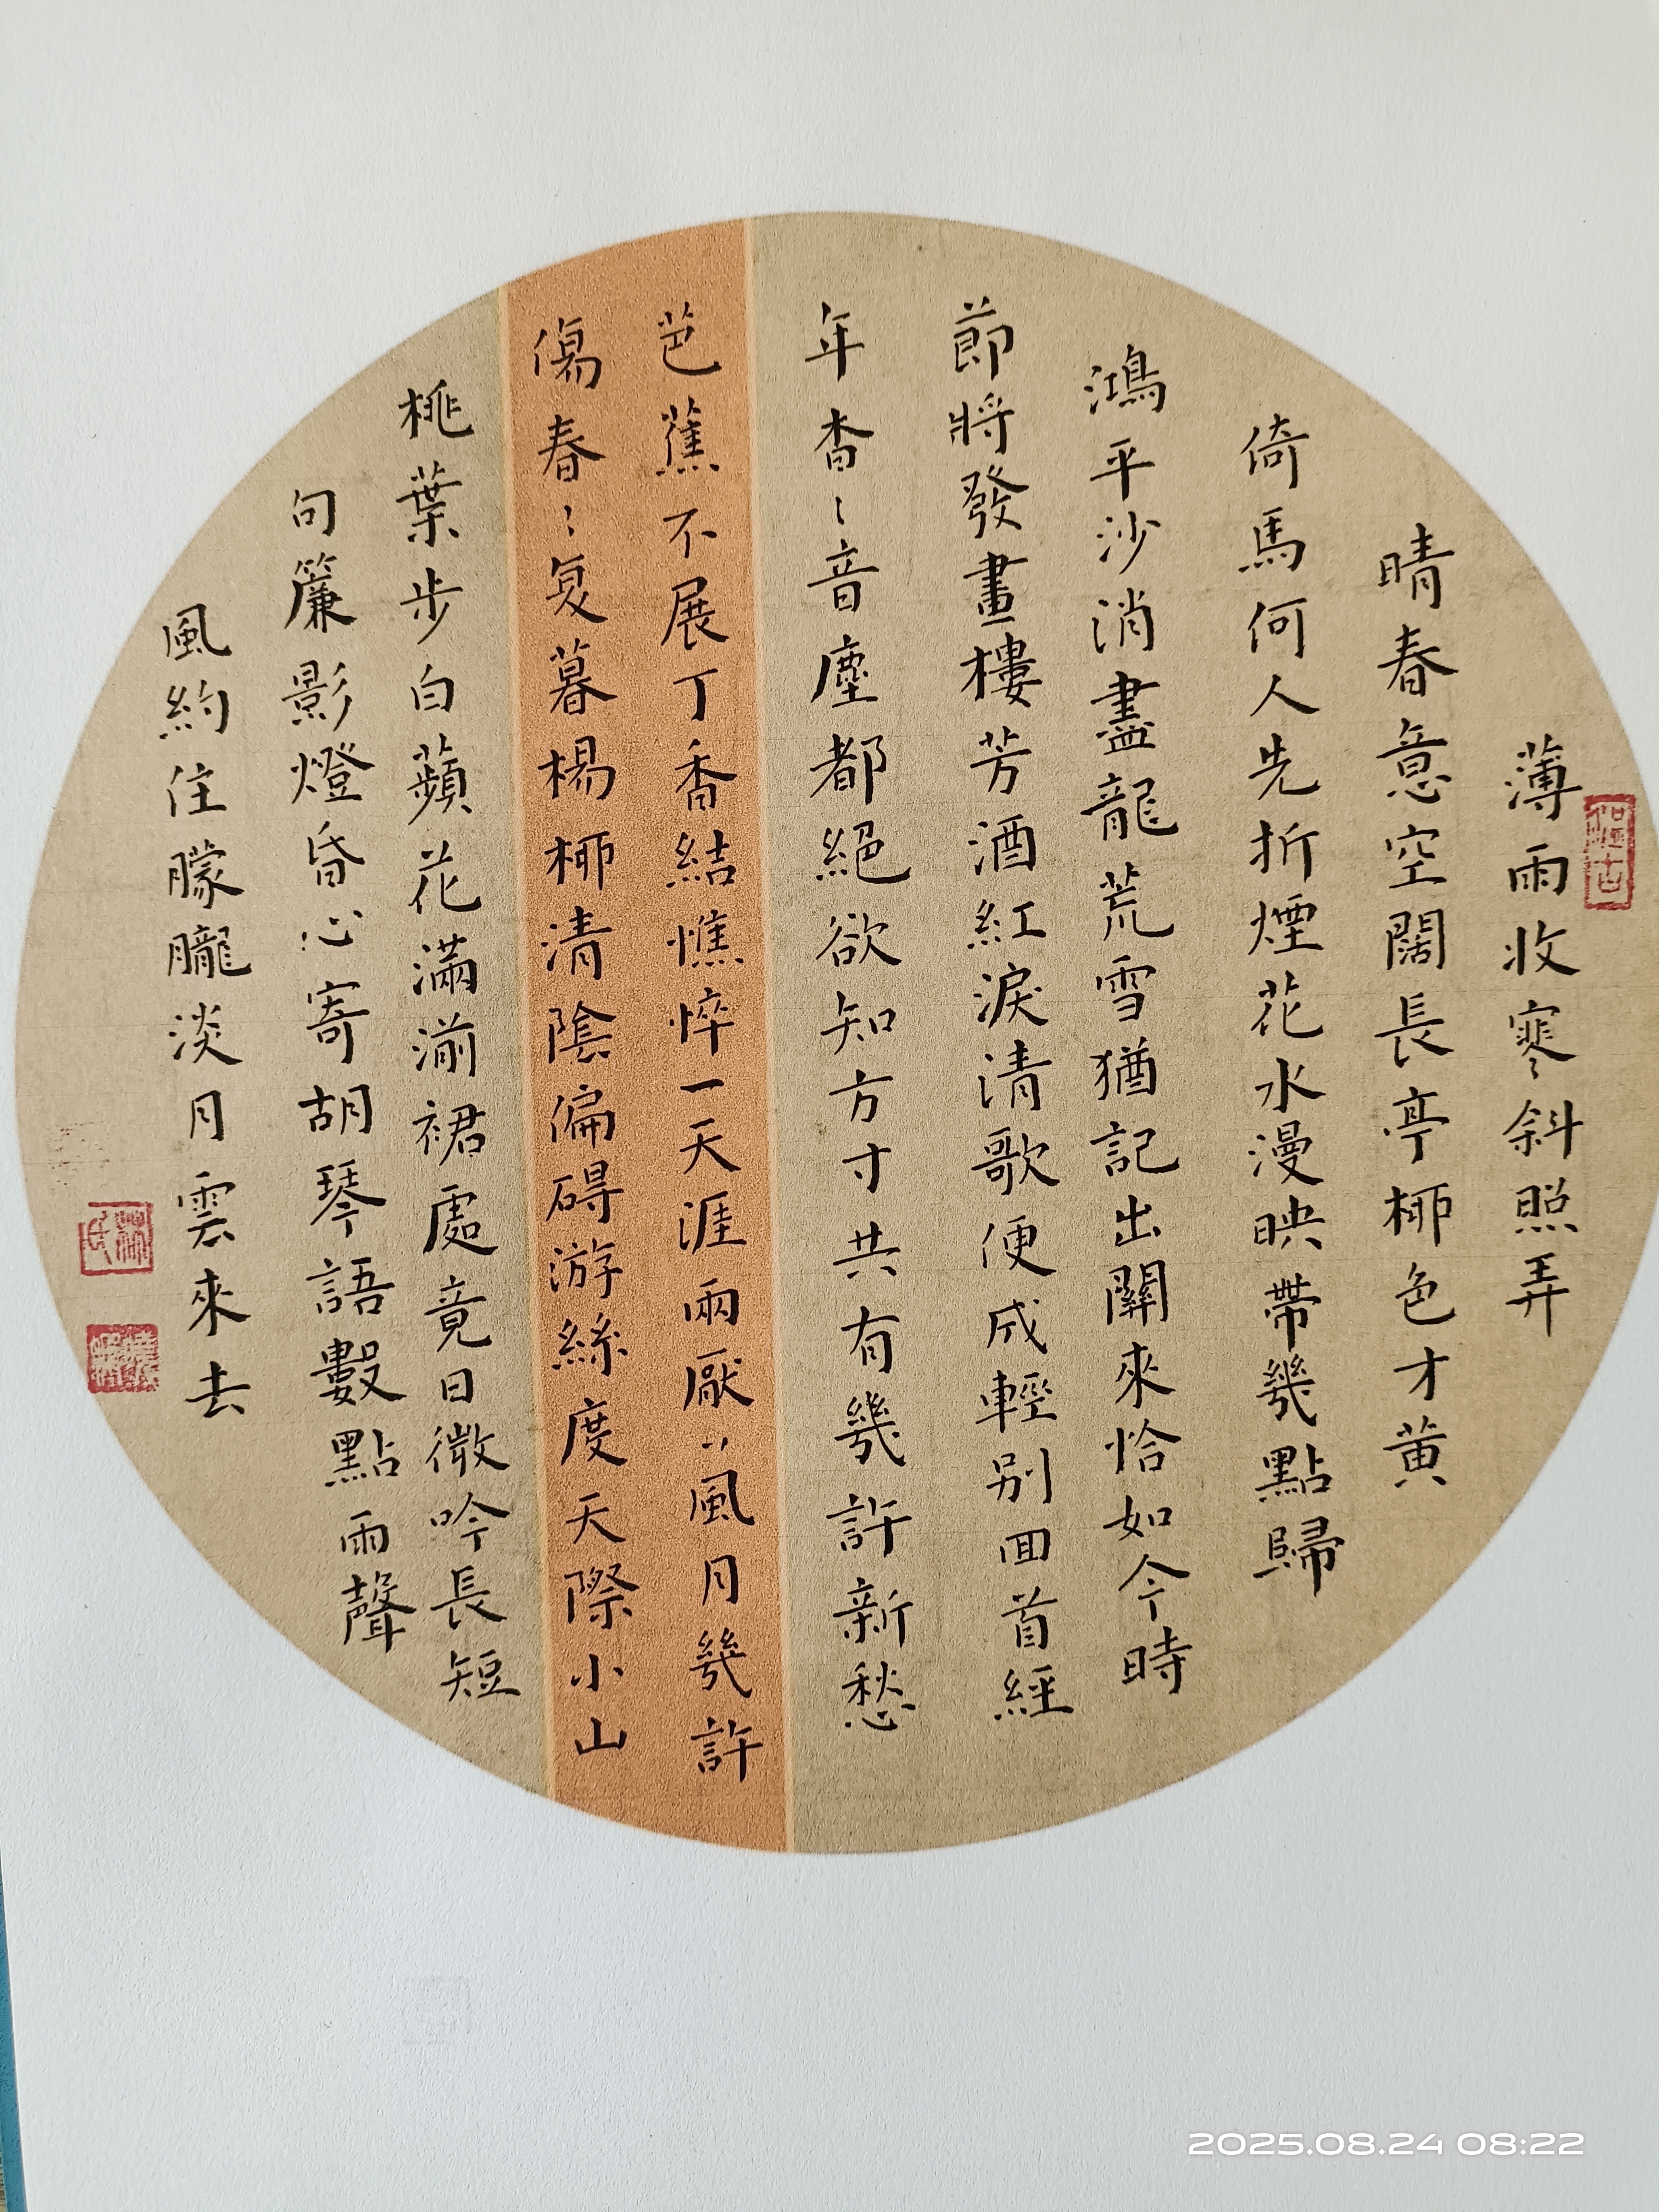 薄雨收寒斜照弄
晴春意空闊長亭柳色才黄
倚馬何人先折煙花水漫映帶幾點歸
鴻平沙消盡龍荒雪猶記出關來恰如今時
節將發畫樓芳酒紅淚清歌便成輕別回首經
年杳〻音塵都絕欲知方寸共有幾許新愁
芭蕉不展丁香結憔悴一天涯兩厭〻風月幾許
傷春〻复暮楊柳清陰偏碍游絲度天際小山
桃葉步白蘋花滿湔裙處竟日微吟長短
句簾影燈昏心寄胡琴語數點雨聲
風約住朦朧淡月雲來去
2025.08.24 08:22